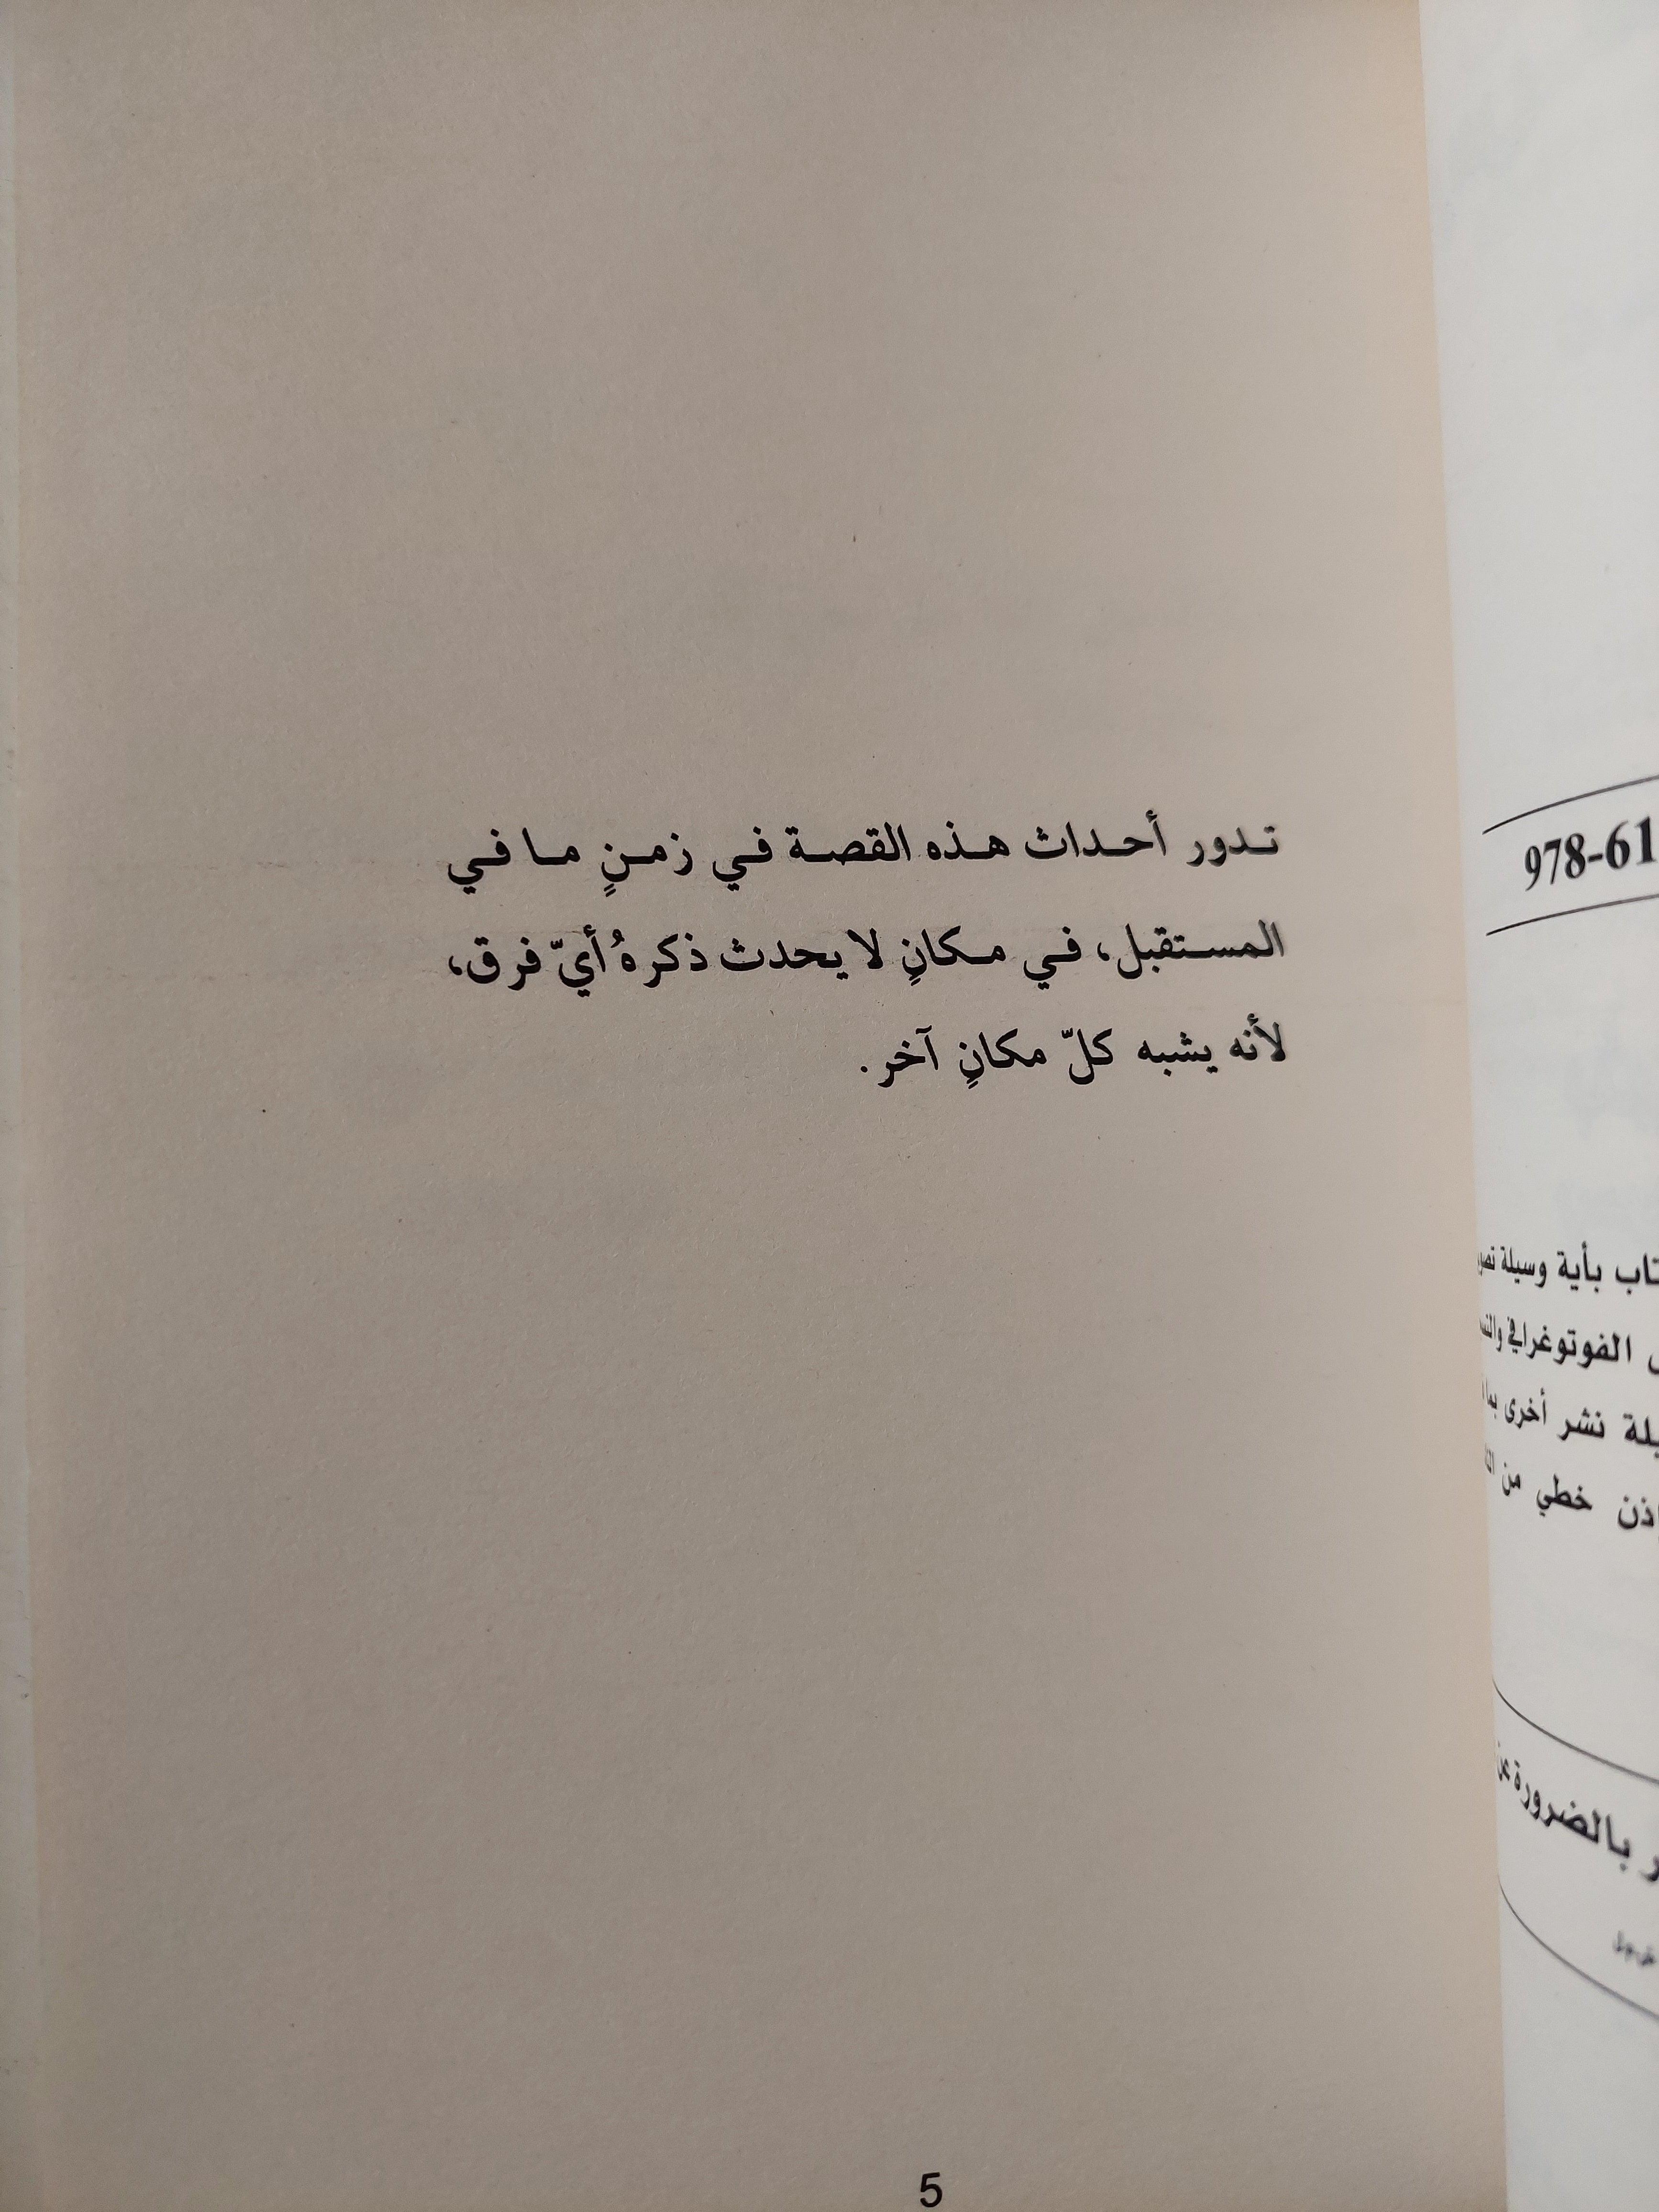 تدور أحداث هذه القصة في زمنٍ ما في
المستقبل، في مكانٍ لا يحدث ذكرهُ أيّ فرق،
لأنه يشبه كلّ مكانٍ آخر.
5
978-61
بأية وسيلة
الفوتوغرافي
نشر أخرى بما
خطي من
بالضرورة عن